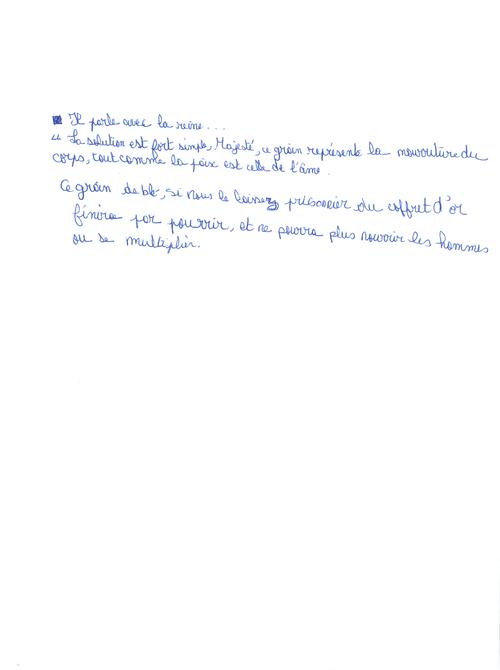 Il parle avec la reine...
" La solution est fort simple, Majesté, ce grain représente la nourriture du
corps, tout comme la paix est celle de l'âme.
Ce grain de blé, si nous le laissez prisonnier du coffret d'or
finira par pourrir, et ne pourra plus nourrir les hommes
ou se multiplier.